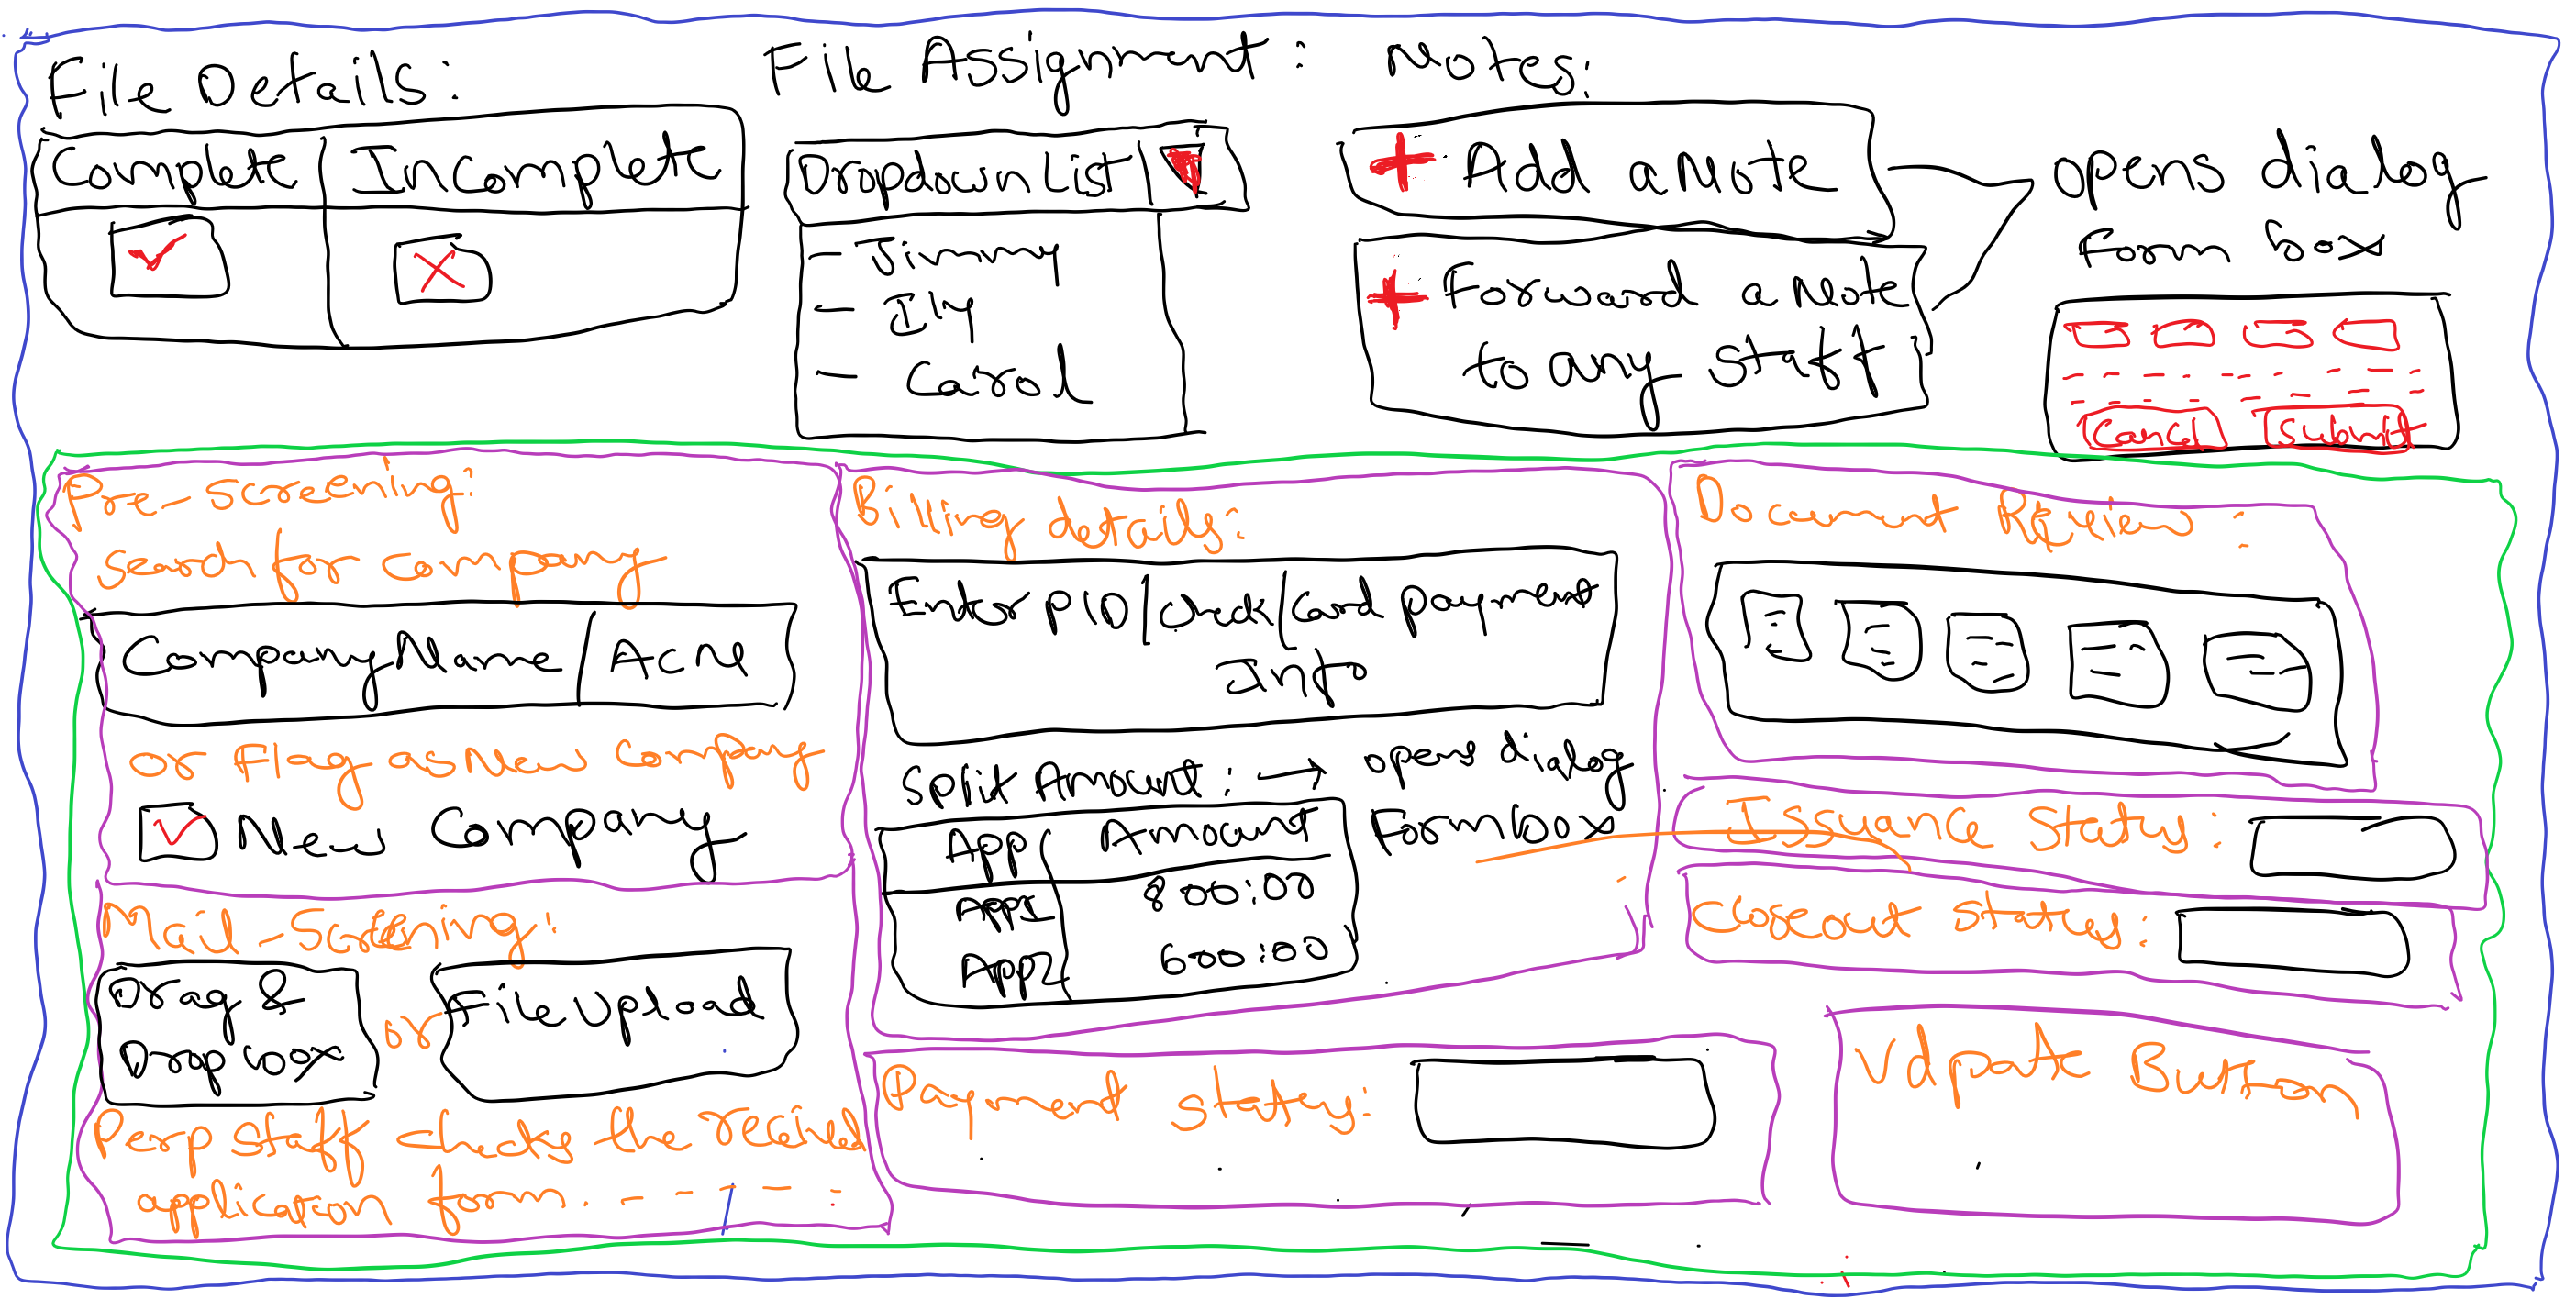 File Details:
Complete Incomplete
File Assignment:
Dropdown List
- Jimmy
- Ily
- Carol
Notes:
+ Add a Note
+ Forward a Note
to any staff
opens dialog
form box
Cancel Submit
Pre-screening:
search for company
Company Name / ACN
or Flag as New Company
New Company
Mail-Screening:
Drag &
Drop box
or
File Upload
Perp staff checks the received
application form.
Billing details:
Enter PID/check/Card payment
Info
Split Amount: → opens dialog
Form box
App Amount
App1 800:00
App2 600:00
Payment status:
Document Review:
Issuance Status:
Closeout Status:
Update Button